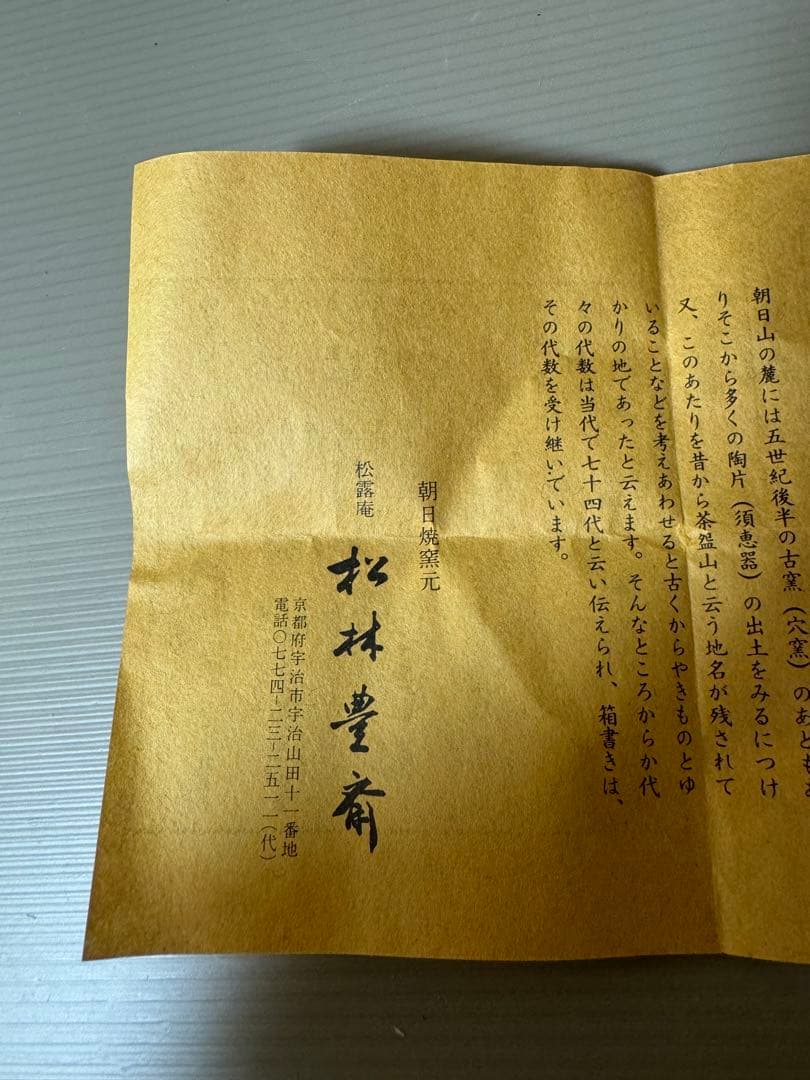 朝日山の麓には五世紀後半の古窯(穴窯)のあとも
りそこから多くの陶片(須恵器)の出土をみるにつけ
又、このあたりを昔から茶盌山と云う地名が残されて
いることなどを考えあわせると古くからやきものとゆ
かりの地であったと云えます。そんなところからか代
々の代数は当代で七十四代と云い伝えられ、箱書きは、
その代数を受け継いでいます。
朝日焼窯元
松露庵 松林豊斎
京都府宇治市宇治山田十一番地
電話〇七七四-二三-二五一一(代)